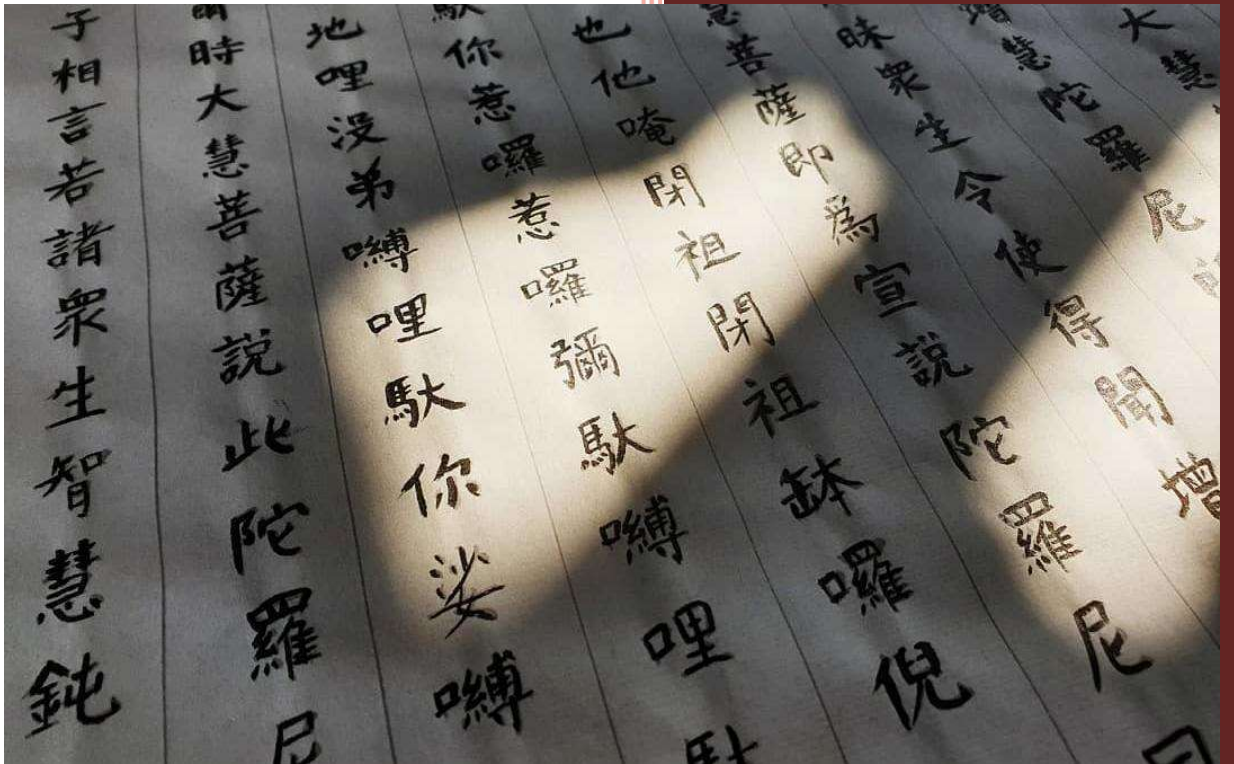 大慧
增慧陀羅尼
昧衆生令使得聞增
慧菩薩即爲宣說陀羅尼曰
也他唵閉祖閉祖鉢囉倪
馱你惹囉惹囉彌馱嚩哩馱
地哩没弟嚩哩馱你娑嚩
爾時大慧菩薩說此陀羅尼
子相言若諸衆生智慧鈍